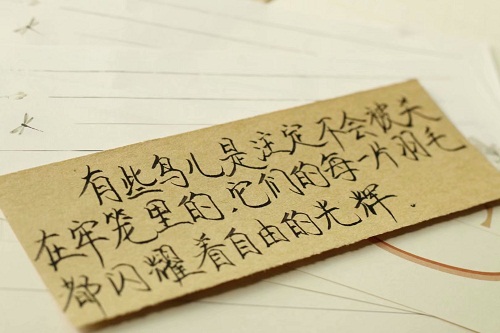 有些鸟儿是注定不会被关
在牢笼里的.它们的每一片羽毛
都闪耀着自由的光辉.